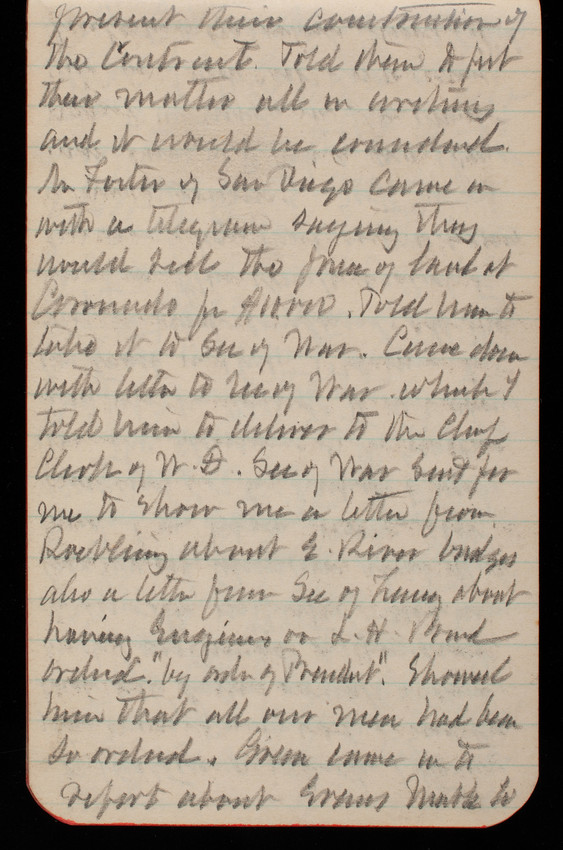 present their construction of
the Contract. Told them to put
their matter all in writing
and it would be considered.
Mr Foster of San Diego came in
with a telegram saying they
would sell the piece of land at
Coronado for. Told him to
take it to Sec of War. Came down
with letter to Sec of War which I
told him to deliver to the Chief
Clerk of W.D. Sec of War sent for
me to show me a letter from
Roebling about E. River bridges
also a letter from Sec of Treasy about
having Engineers on L.H. Board
ordered "by order of President". Showed
him that all our men had been
so ordered. Green came in to
report about Evans